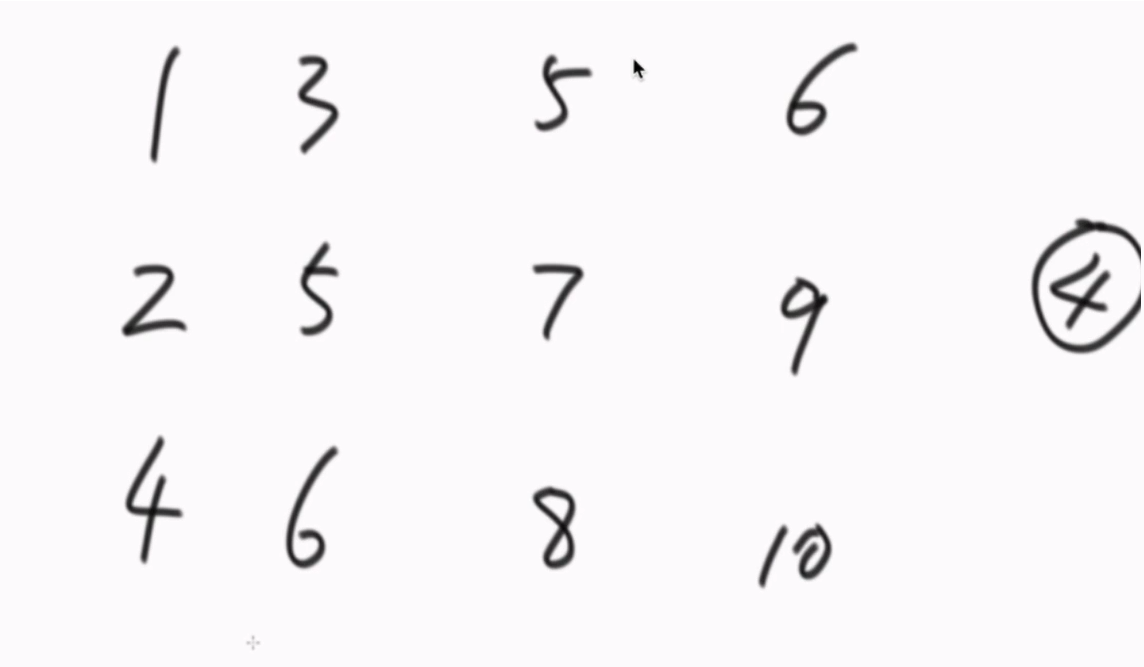 1 3 5 6
2 5 7 9 4
4 6 8 10